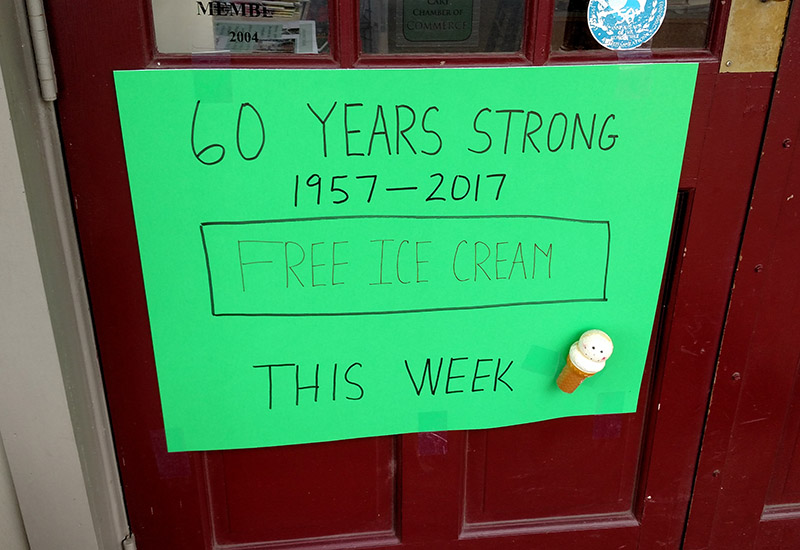 MEMBE
2004
CHAMBER OF
COMMERCE
60 YEARS STRONG
1957-2017
FREE ICE CREAM
THIS WEEK